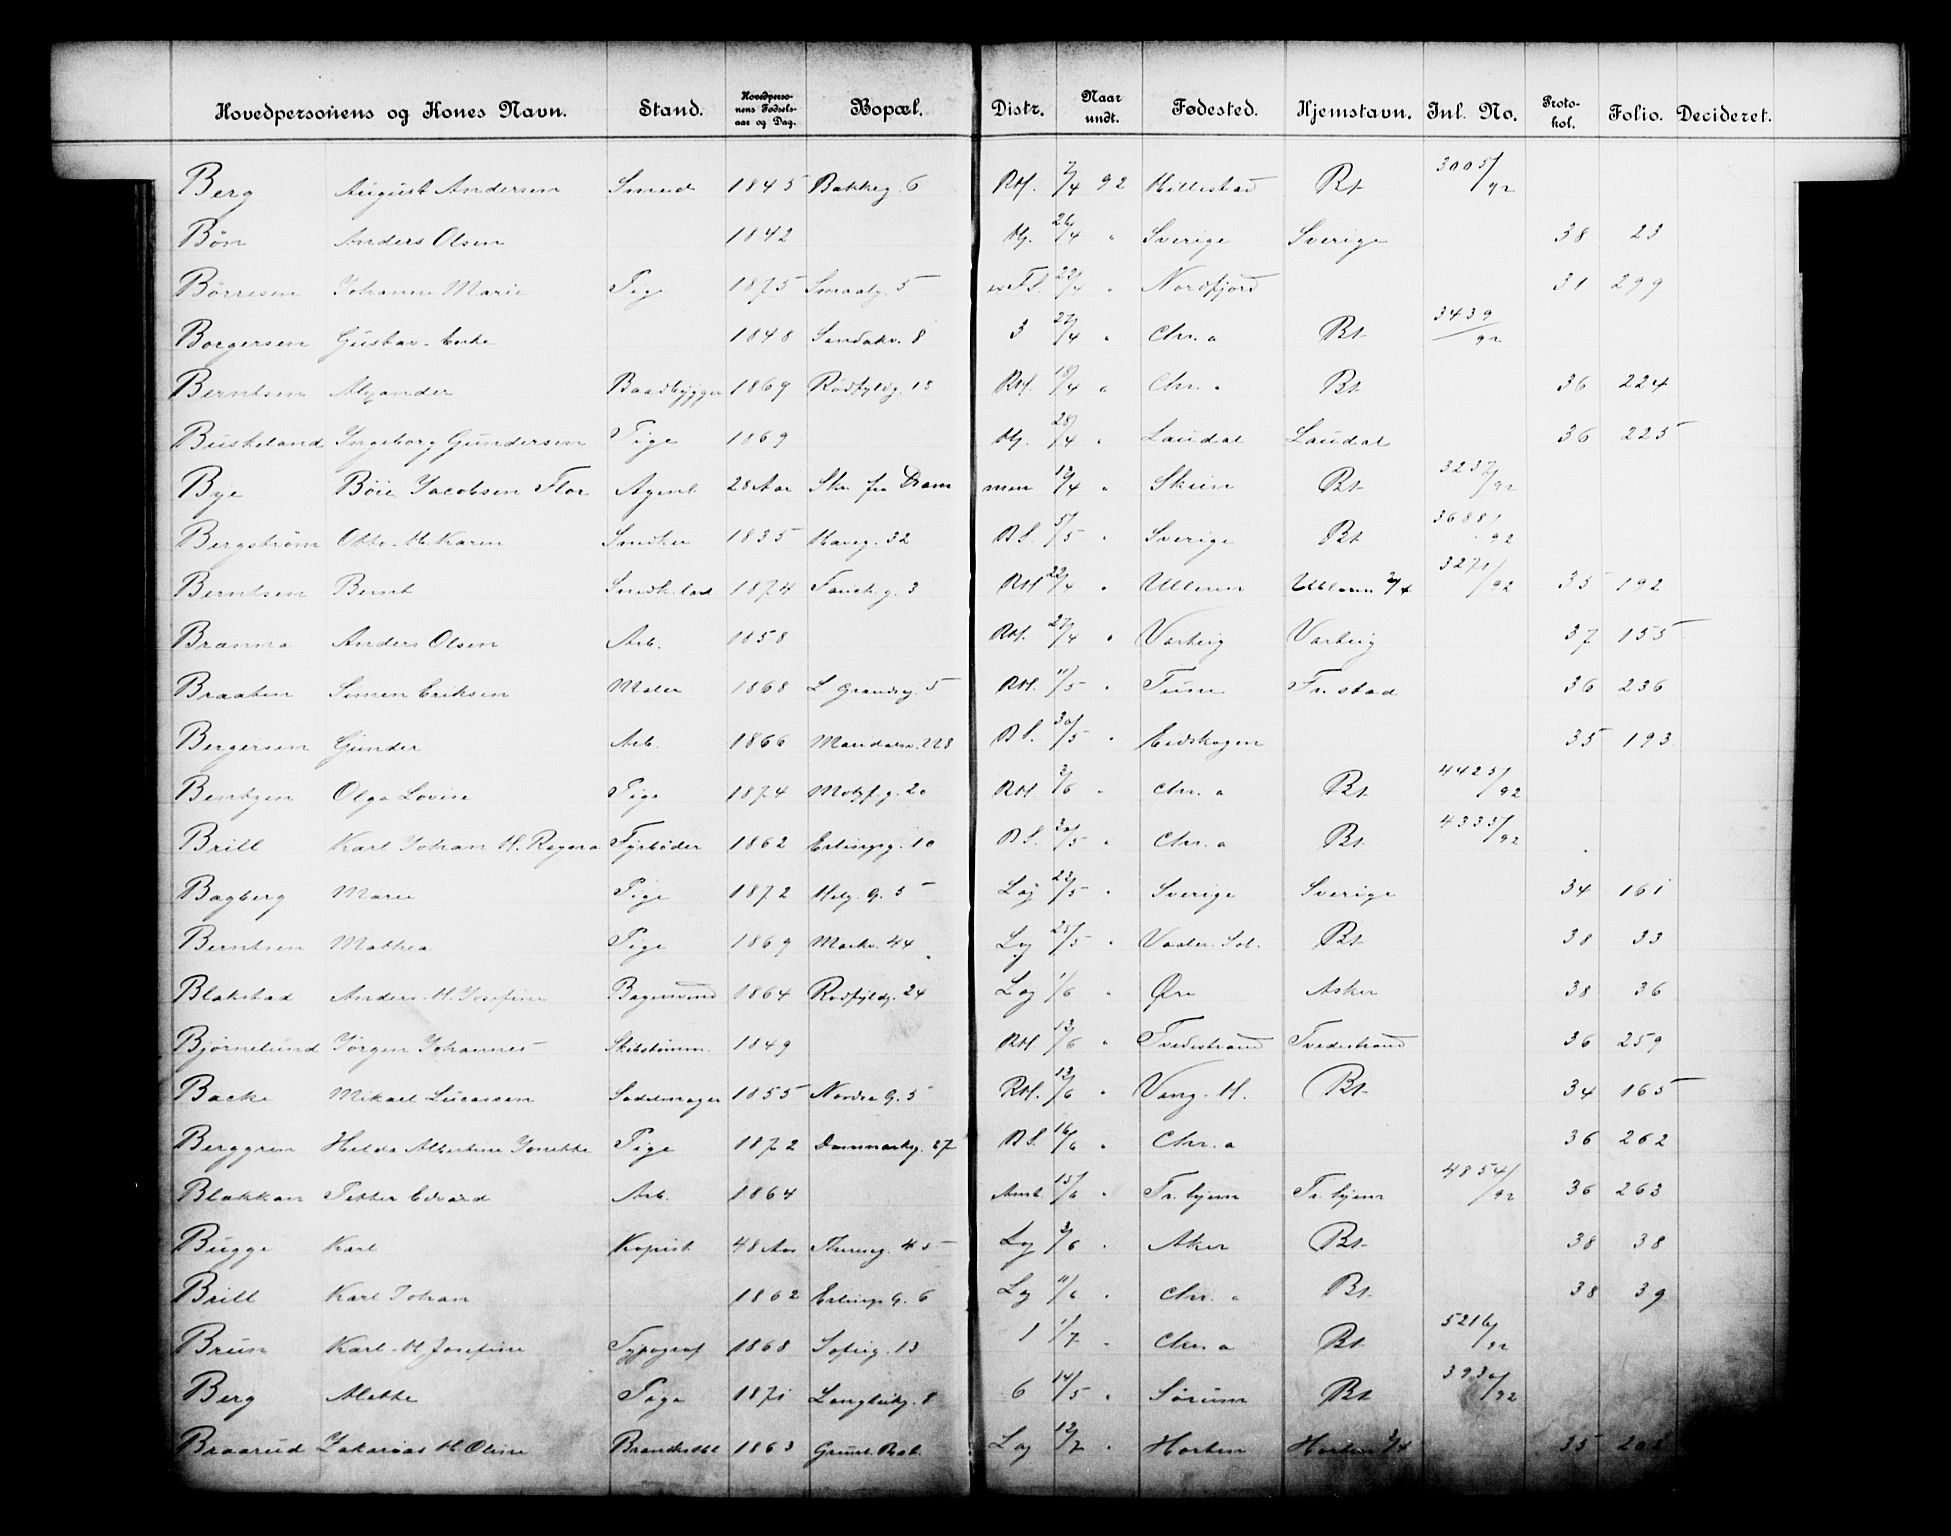 Hovedpersonens og Kones Navn. Stand. Hovedpersonens Fødselsaar og Dag. Bopæl. Distr. Naar undt. Fødested. Hjemstavn. Inl. No. Protokol. Folio. Decideret.
Berg August Andersen Smed 1845 Bakkeg. 6 RM. 7/4 92 Hillestad Bt 3005/92
Bön Anders Olsen 1842 Hj. 26/4 " Sverige Sverige 38 23
Börresen Johanne Marie Pige 1875 Smaalg. 5 29/4 " Nordfjord 31 299
Borgersen Gustav - Enke 1848 Sandakv. 8 3 27/4 " Chr.a Bt 3439/92
Berntsen Alexander Baadbygger 1869 Rødfyldg. 18 RM. 18/4 " Chr. a Bt 36 224
Buskeland Ingeborg Gundersen Pige 1869 Hj. 28/4 " Laudal Laudal 36 225
Bye Böie Jacobsen Flor Agent 28 Aar Skr. fra Drammen 13/4 " Skien Bt 3237/92
Bergström Otto - H. Karen Snedker 1835 Haveg. 32 BS. 5/5 " Sverige Bt 3688/92
Berntsen Bernt 1874 3 RM 22/4 " Ulleren Ulleren 35 192
Branma Anders Olsen Arb. 1858 RM. 27/4 " Varteig Varteig 37 155
Braaten Simen Eriksen Maler 1868 L Grændsg. 5 RM. 11/5 " Tune Fr.stad 36 236
Bergersen Gunder Arb. 1866 Maridalsv. 228 BS. 30/5 " Eidskogen 35 193
Bentzen Olga Lovise Pige 1874 Motzf. g. 20 RM. 2/6 " Chr. a Bt 4425/92
Brill Karl Johan H. Ragna Fyrböder 1862 Erlingsg. 10 BS. 30/5 " Chr. a Bt 4335/92
Bagberg Marie Pige 1872 Helg. G. 5 Loj 23/5 " Sverige Sverige 34 161
Berntsen Mathea Pige 1869 Markv. 44 Loj 25/5 " Vaaler. Sol. Bt 38 33
Blakstad Anders - H. Josefine Bagersvend 1864 Rødfyldg. 24 Loj 1/6 " Øre Asker 38 36
Björnelund Jörgen Johannes Skibstömm. 1849 RM. 13/6 " Tvedestrand Tvedestrand 36 259
Backe Mikael Lucassen Sadelmager 1855 Nordre G. 5 RM. 13/6 " Vang. H. Bt 34 165
Berggren Hilda Albertine Jonette Pige 1872 Danmarksg. 27 BS. 16/6 " Chr. a 36 262
Blakkan Petter Edvard Arb. 1864 15/6 " Tr.hjem Tr.hjem 4854/92 36 263
Bugge Karl Kopist 48 Aar Thereseg. 45 Loj 3/6 " Aker Bt 38 38
Brill Karl Johan 1862 Erlings G. 6 Loj 11/6 " Chr. a Bt 38 39
Brun Karl - H Josefine Typograf 1868 Sofieg. 13 1 1/7 " Chr. a Bt 5216/92
Berg Alette Pige 1871 Langleikg. 8 6 14/5 " Sörum Bt 3930/92
Braarud Zakarias H. Oline 1863 Loj 12/7 " Horten Horten 35